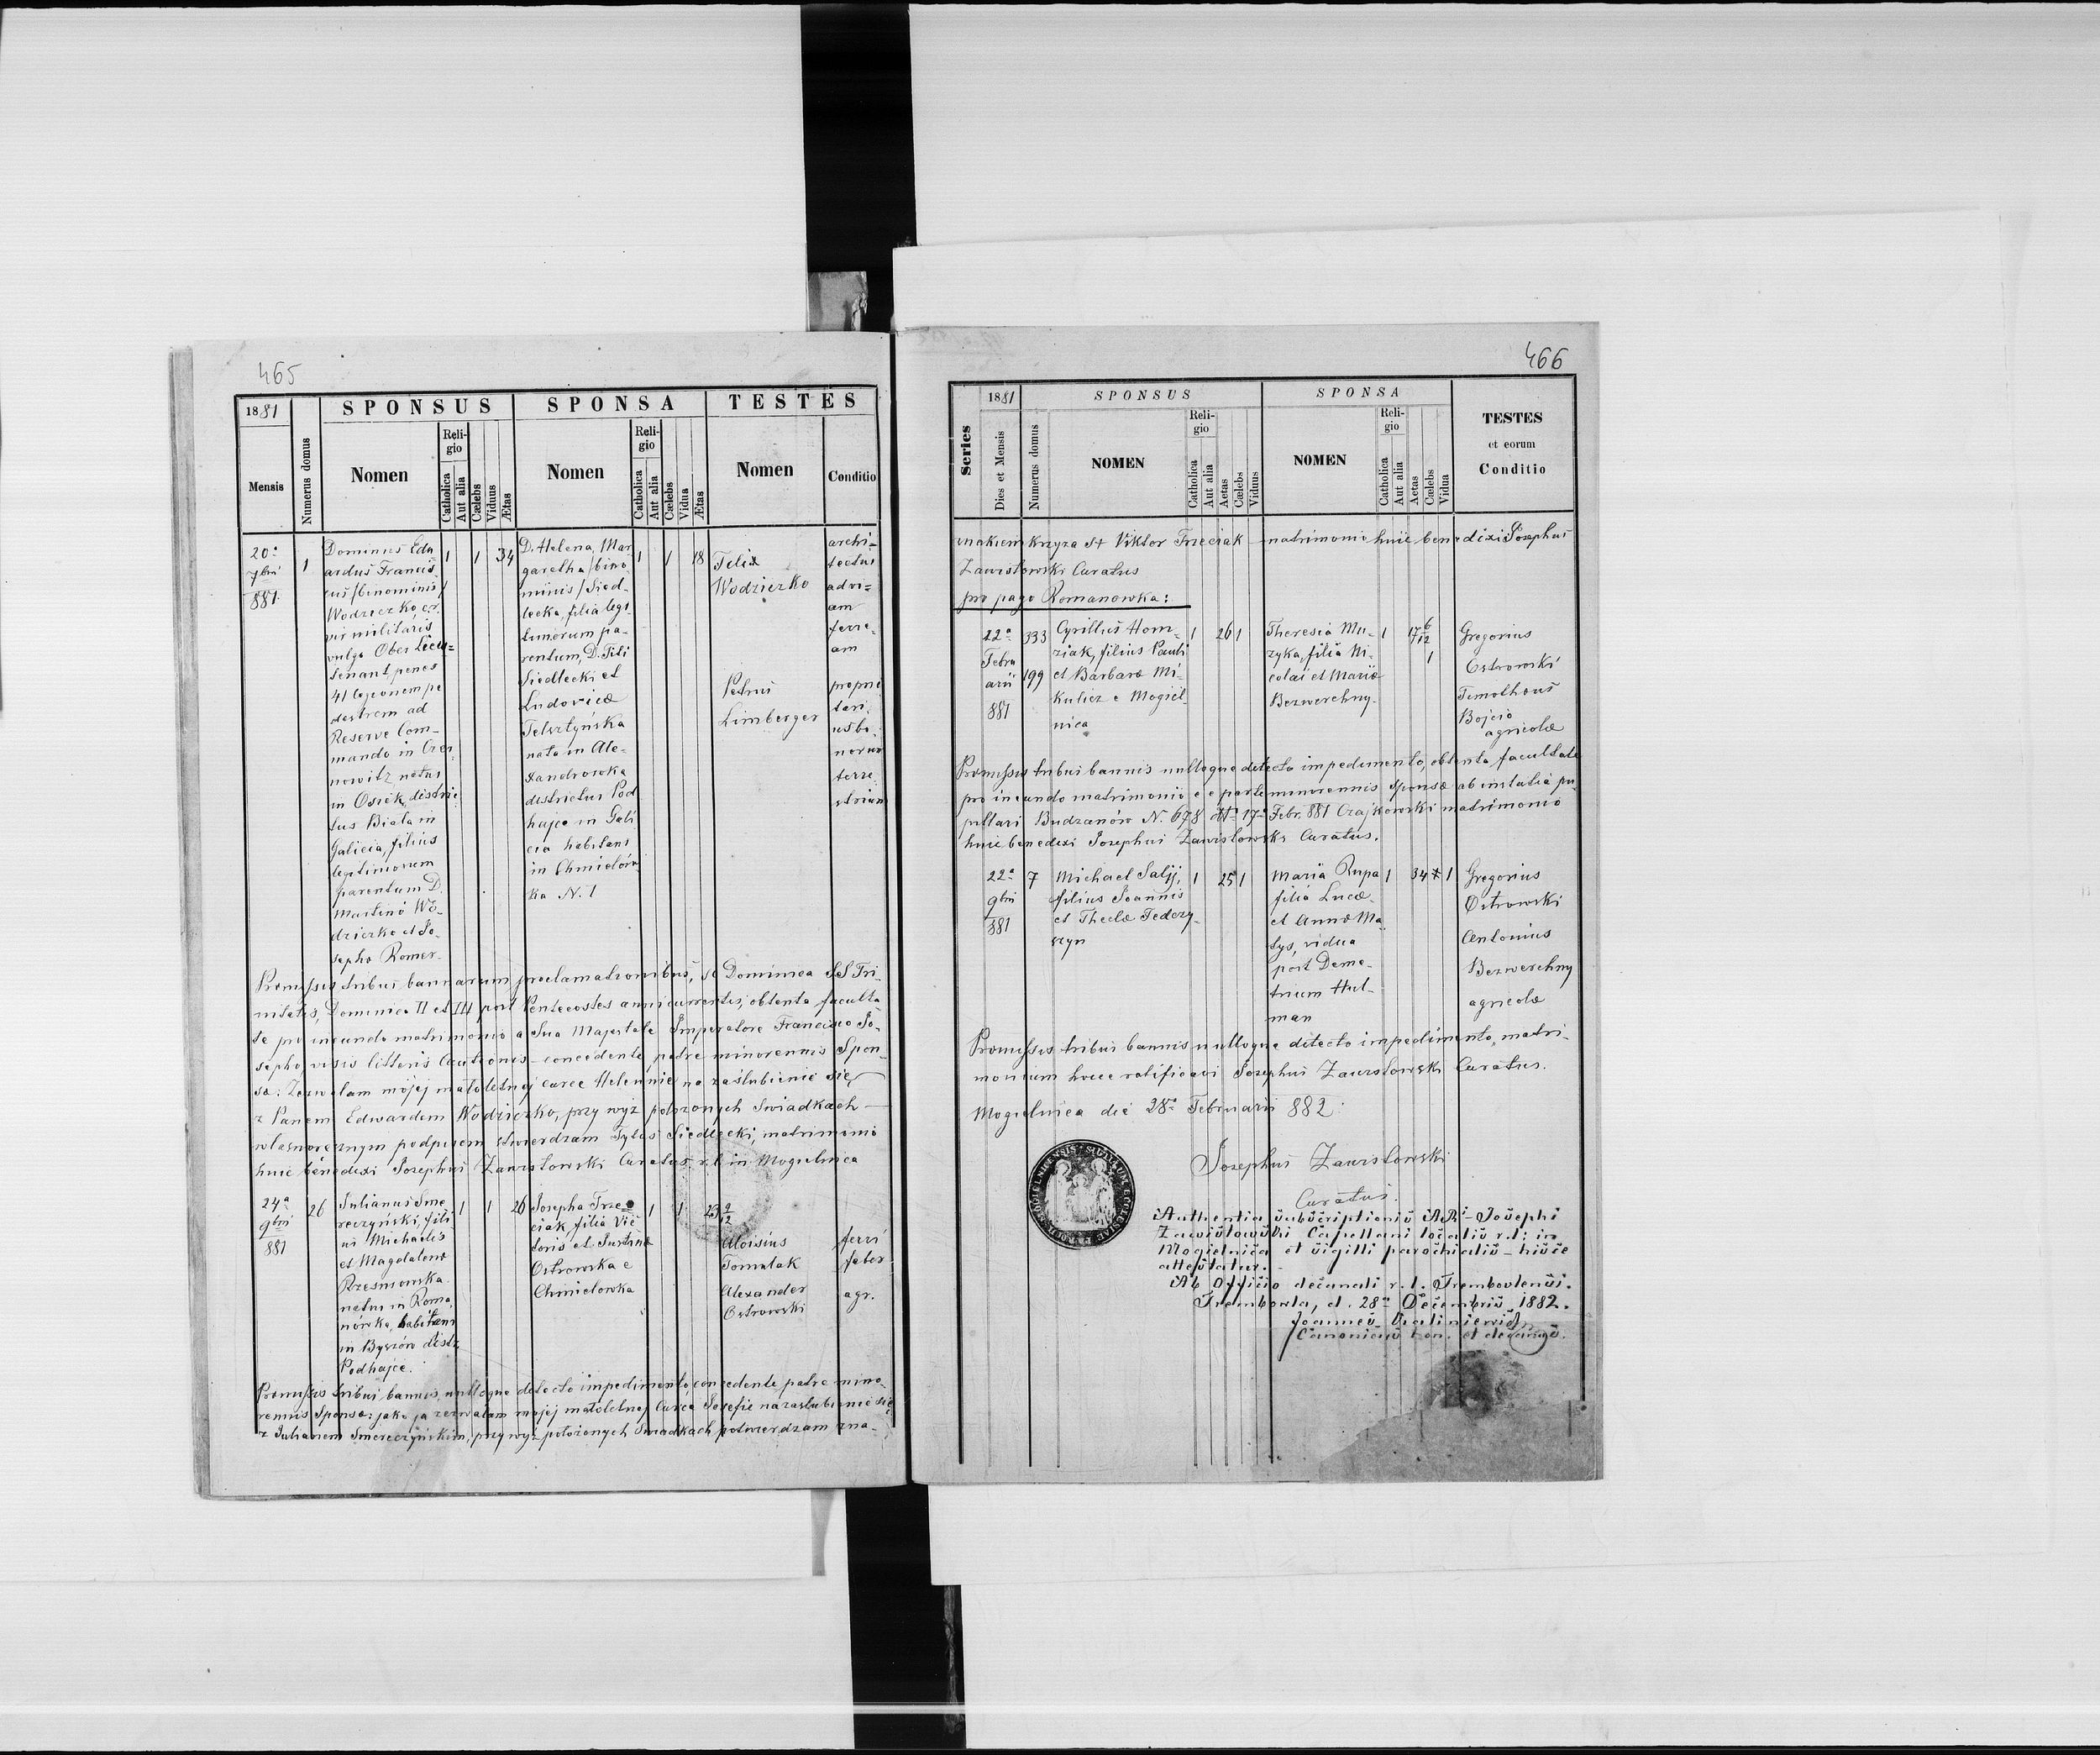 465
1881 SPONSUS SPONSA TESTES
Mensis Numerus domus Nomen Religio Catholica Aut alia Cælebs Viduus Ætas Nomen Religio Catholica Aut alia Cælebs Vidua Ætas Nomen Conditio
20a 7bris 881
1
Dominus Edu
ardus Francis
cus /binominis/
Wodziczko, 
vir militaris
vulgo Ober Lieu=
tenant, penes
41 legionem pe
destrem ad
Reserve Com-
mando in Czer
nowitz natus
in Osiek, distric
tus Biala in
Galicia, filius
legitimorum
parentum D.
Martino Wo-
dziczko et Jo-
sepha Romer.
1 1 34
D. Helena, Mar
garetha /bino
minis/ Sied-
lecka, filia legi
timorum pa-
rentum, D. Titi
Siedlecki et
Ludovicæ
Telsztyńska
nata in Ale-
xandrowka
districtus Pod
hajce in Gali
cia habitans
in Chmielów
ka N. 1
1 1 18
Felix
Wodziczko
archi-
tectus
ad vi=
am
ferre-
am
Petrus
Limberger
propri
tari
us bo
norum
terre
strium
Præmissis tribus bannorum proclamationibus, sc Dominica SS Tri-
nitatis, Dominica II et III post Pentecostes anni currentis, obtenta faculta
te pro ineundo matrimonio a Sua Majestate Imperatore Francisco Jo-
sepho, visis litteris Cautionis - concedente patre minorennis Spon-
sæ: Zezwalam mojej małoletniej córce Helennie na zaślubienie się
z Panem Edwardem Wodziczko, przy wyż położonych Swiadkach -
własnoręcznym podpisem stwierdzam Tytus Siedlecki, matrimonio
huic benedixi Josephus Zawisłowski Curatus r. l. in Mogielnica
24a 9bris 881
26
Julianus Sme
reczyński, fili
us Michaelis
et Magdalena
Rzesniowska
natus in Roma
nówka, habitans
in Byszów distr.
Podhajce.
1 1 26
Josepha Trze
ciak, filia Vic
toris et Justina
Ostrowska e
Chmielowka
1 1 23 2/12
Aloisius
Tomulak
ferri
faber
Alexander
Ostrowski
agr.
Præmissis tribus bannis, nulloque detecto impedimento, concedente patre mino
rennis Sponsæ: jako ja zezwalam mojej małoletniej Córce Jozefie na zaslubienie się
z Julianem Smereczyńskim, przy wyż położonych Swiadkach potwierdzam zna-
466
Series 1881 Dies et Mensis Numerus domus SPONSUS NOMEN Religio Catholica Aut alia Aetas Cælebs Viduus SPONSA NOMEN Religio Catholica Aut alia Aetas Cælebs Vidua TESTES et eorum Conditio
znakiem krzyza S+ Viktor Trzeciak - matrimonio huic benedixi Josephus
Zawistowski Curatus
pro pago Romanowka:
22a Febru arii 881
333
199
Cyrillus Hom-
ziak, filius Pauli
et Barbaræ Mi-
kulicz e Mogiel
nica
1 26 1
Theresia Mu-
zyka, filia Ni-
colai et Mariæ
Bezwerchny.
1 17 6/12 1
Gregorius
Ostrowski
Timotheus
Bojcio
agricolæ
Præmissis tribus bannis nulloque detecto impedimento, obtenta facultate
pro ineundo matrimonio e parte minorennis sponsæ ab instatia pu-
pillari Budzanów N. 678 dto 17a Febr. 881 Czajkowski matrimonio
huic benedixi Josephus Zawistowski Curatus.
22a 9bris 881
7
Michael Salij,
filius Joannis
et Theclæ Fedczy-
szyn
1 25 1
Maria Rupa
filia Lucæ
et Annæ Ma
tys, vidua
post Deme-
trium Hul-
man
1 34 1
Gregorius
Ostrowski
Antonius
Bezwerchny
agricolæ
Præmissis tribus bannis nulloque detecto impedimento, matri-
monium hocce ratificavi Josephus Zawistowski Curatus.
Mogielnica die 28a Februarii 882.
Josephus Zawistowski
Curatus.
Authentia subscriptionis A.R. Josephi
Zawistowski Capellani localis r.l: in
Mogielnica et sigilli parochialis - hisce
attestatur.
Ab Officio decanali r. l. Trembovlensi.
Trembowla, d. 28a Decembris 1882.
Joannes
Canonicus hon. et decanus.